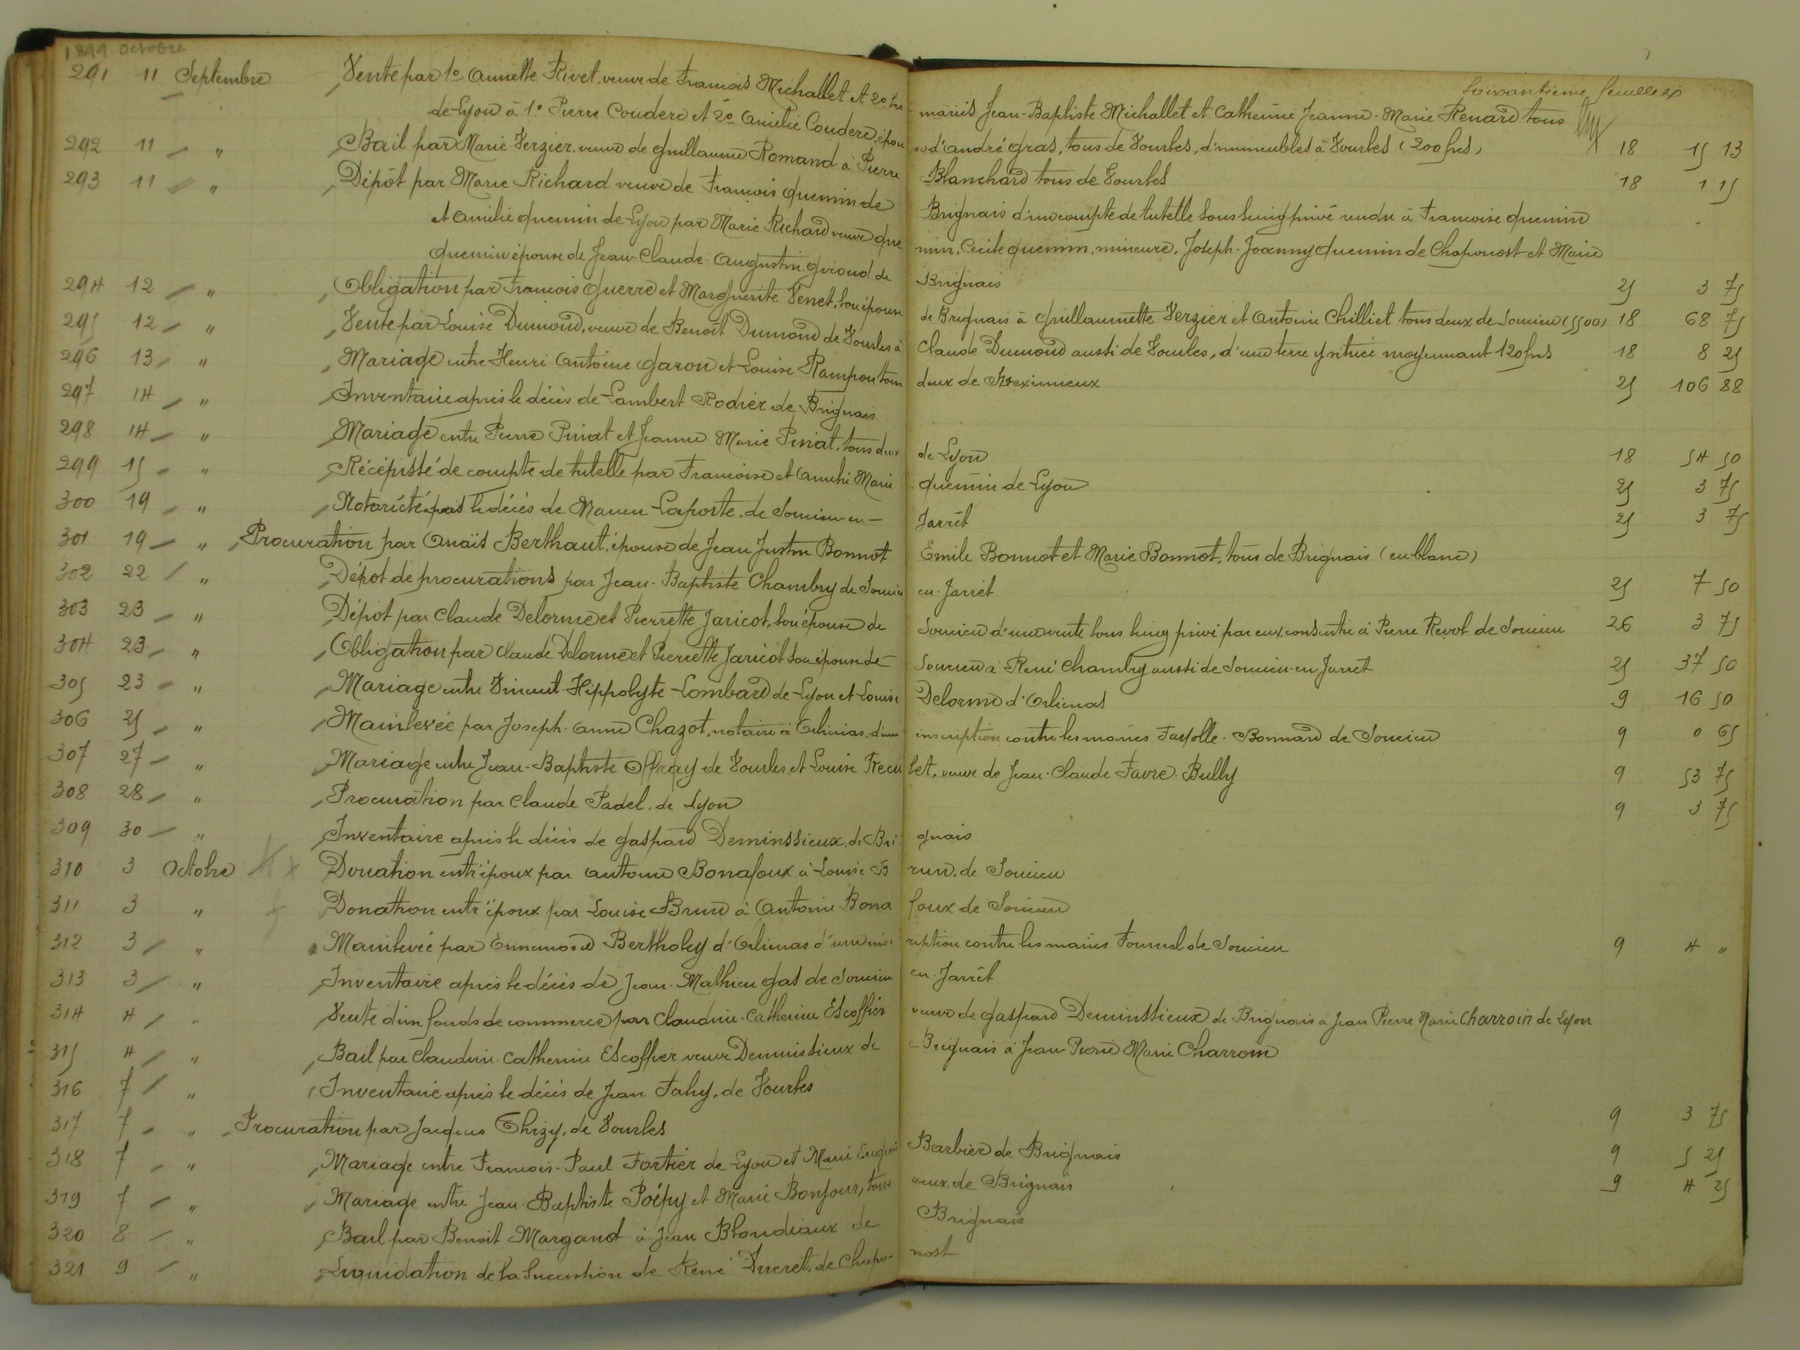 1899 Octobre
Soixantième feuillet
291 11 Septembre Vente par 1o Annette Rivet, veuve de François Michallet et 2o les mariés Jean-Baptiste Michallet et Catherine Jeanne-Marie Renard tous
de Lyon à 1o Pierre Coudere et 2o Amélie Coudere, épouse d'André Gras, tous de Vourles, d'immeubles à Vourles (200 frcs) 18 15 13
292 11 " Bail par Marie Verzier, veuve de Guillaume Romand à Pierre Blanchard tous de Vourles 18 1 15
293 11 " Dépôt par Marie Richard veuve de François Quemin de Brignais d'un compte de tutelle sous seing privé rendu à Francoise Quemin
et Amélie Quemin de Lyon par Marie Richard veuve Quemin, Cécile Quemin, mineure, Joseph-Joanny Quemin de Chaponost et Marie
Quemin épouse de Jean-Claude-Augustin Giroud de Brignais 25 3 75
294 12 " Obligation par François Guerre et Marguerite Venet, son épouse de Brignais à Guillaumette Verzier et Antoine Chilliet tous deux de Soucieu (5500) 18 68 75
295 12 " Vente par Louise Dumond, veuve de Benoît Dumond de Vourles à Claude Dumond aussi de Vourles, d'une terre y située moyennant 120 frcs 18 8 25
296 13 " Mariage entre Henri Antoine Garon et Louise Rampon tous deux de Meximieux 25 106 88
297 14 " Inventaire après le décès de Lambert Rodier de Brignais
298 14 " Mariage entre Pierre Piniat et Jeanne Marie Piniat, tous deux de Lyon 18 54 50
299 15 " Récépissé de compte de tutelle par Francoise et Amélie Marie Quemin de Lyon 25 3 75
300 19 " Notoriété après le décès de Laporte, de Soucieu-en-Jarrêt 25 3 75
301 19 " Procuration par Anaïs Berthaut, épouse de Jean Justin Bonnot Emile Bonnot et Marie Bonnot, tous de Brignais (en blanc)
302 22 " Dépôt de procurations par Jean-Baptiste Chambry de Soucieu en-Jarrêt 25 7 50
303 23 " Dépôt par Claude Delorme et Pierrette Jaricot, son épouse de Soucieu d'une vente sous seing privé par eux consentie à Pierre Revol de Soucieu 26 3 75
304 23 " Obligation par Claude Delorme et Pierrette Jaricot son épouse de Soucieu à René Chambry aussi de Soucieu-en Jarrêt 25 37 50
305 23 " Mariage entre Vincent-Hippolyte Lombard de Lyon et Louise Delorme d'Orliénas 9 16 50
306 25 " Mainlevée par Joseph-Anne Chazot, notaire à Orliénas, d'une inscription contre les mariés Fayolle-Bonnard de Soucieu 9 0 65
307 27 " Mariage entre Jean-Baptiste Offray de Vourles et Louise Reculet, veuve de Jean-Claude Favre-Bully 9 53 75
308 28 " Procuration par Claude Padel, de Lyon 9 3 75
309 30 " Inventaire après le décès de Gaspard Deminssieux, de Brignais
310 3 Octobre Donation entr'époux par Antoine Bonafoux à Louise Brun, de Soucieu
311 3 " Donation entr'époux par Louise Brun à Antoine Bonafoux de Soucieu
312 3 " Mainlevée par Ennemond Bertholey d'Orliénas d'une inscription contre les mariés Fournel de Soucieu 9 4 "
313 3 " Inventaire après le décès de Jean-Mathieu Gas de Soucieu en-Jarrêt
314 4 " Vente d'un fonds de commerce par Claudine-Catherine Escoffier veuve de Gaspard Deminssieux de Brignais à Jean Pierre Marie Charroin de Lyon
315 4 " Bail par Claudine-Catherine Escoffier veuve Deminssieux de Brignais à Jean Pierre Marie Charroin
316 7 " Inventaire après le décès de Jean Fahy, de Vourles
317 7 " Procuration par Jacques Thizy, de Vourles 9 3 75
318 7 " Mariage entre François-Paul Fortier de Lyon et Marie Eugénie Barbier de Brignais 9 5 25
319 7 " Mariage entre Jean-Baptiste Poépy et Marie Bonjour, tous deux de Brignais 9 4 25
320 8 " Bail par Benoit Margand à Jean Blondiaux de Brignais
321 9 " Liquidation de la succession de René Ducret, de Chaponost